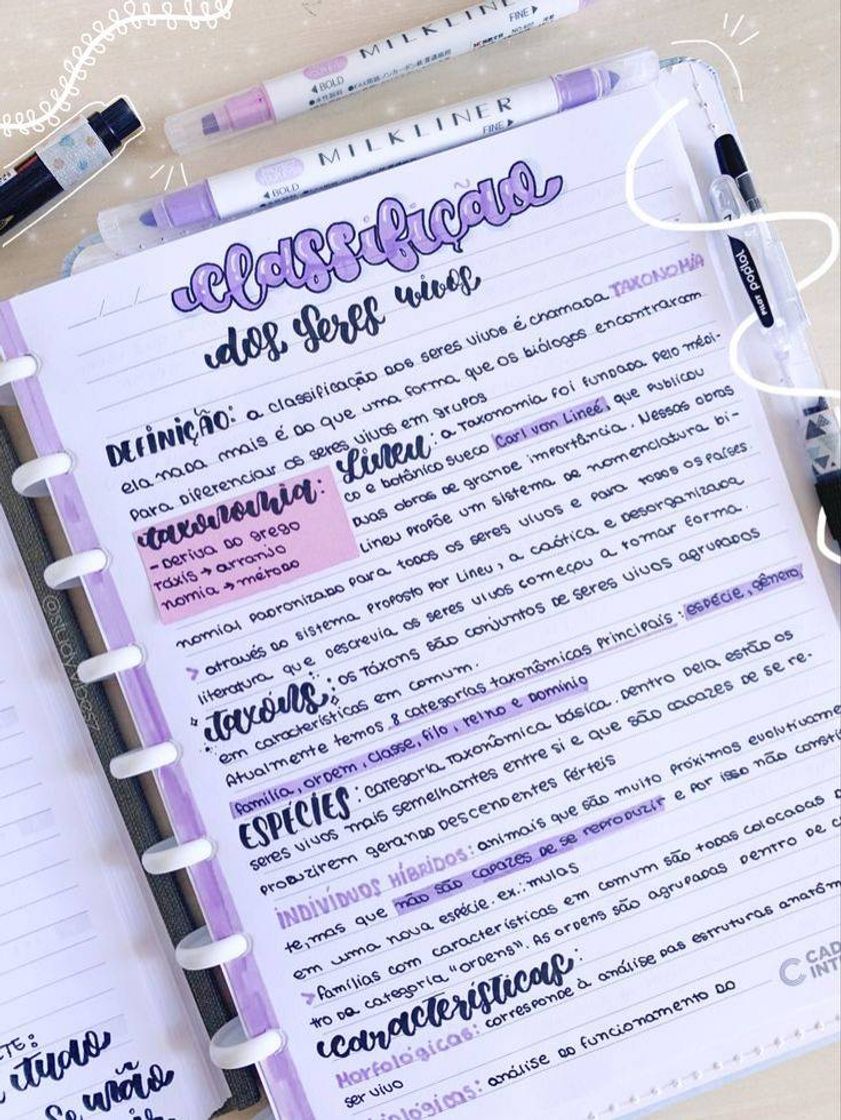 MILKLINER
FINE
BOLD
MILKLINER
FINE
BOLD
classificação
dos seres vivos
DEFINIÇÃO: a classificação dos seres vivos é chamada TAXONOMIA
ela nada mais é do que uma forma que os biólogos encontraram
para diferenciar os seres vivos em grupos
Lineu: a taxonomia foi fundada pelo médi-
co e botânico sueco Carl von Lineé, que publicou
duas obras de grande importância. Nessas obras
Lineu propõe um sistema de nomenclatura bi-
taxonomia:
- Deriva do grego
táxis → arranjo
nomia → método
nomial padronizado para todos os seres vivos e para todos os países
> através do sistema proposto por Lineu, a caótica e desorganizada
literatura que descrevia os seres vivos começou a tomar forma.
táxons: os táxons são conjuntos de seres vivos agrupados
em características em comum.
Atualmente temos 8 categorias taxonômicas principais: espécie, gênero,
família, ordem, classe, filo, reino e domínio
ESPÉCIES: categoria taxonômica básica. Dentro dela estão os
seres vivos mais semelhantes entre si e que são capazes de se re-
produzirem gerando descendentes férteis
INDIVÍDUOS HÍBRIDOS: animais que são muito próximos evolutivame
te, mas que não são capazes de se reproduzir e por isso não consti
em uma nova espécie. ex.: mulas
> famílias com características em comum são todas colocadas
tro da categoria "ordens". As ordens são agrupadas dentro de c
características:
Morfológicas: corresponde à análise das estruturas anatôm
ser vivo
análise do funcionamento do
PILOT poptol
@studyvibesz
CAD
INTE